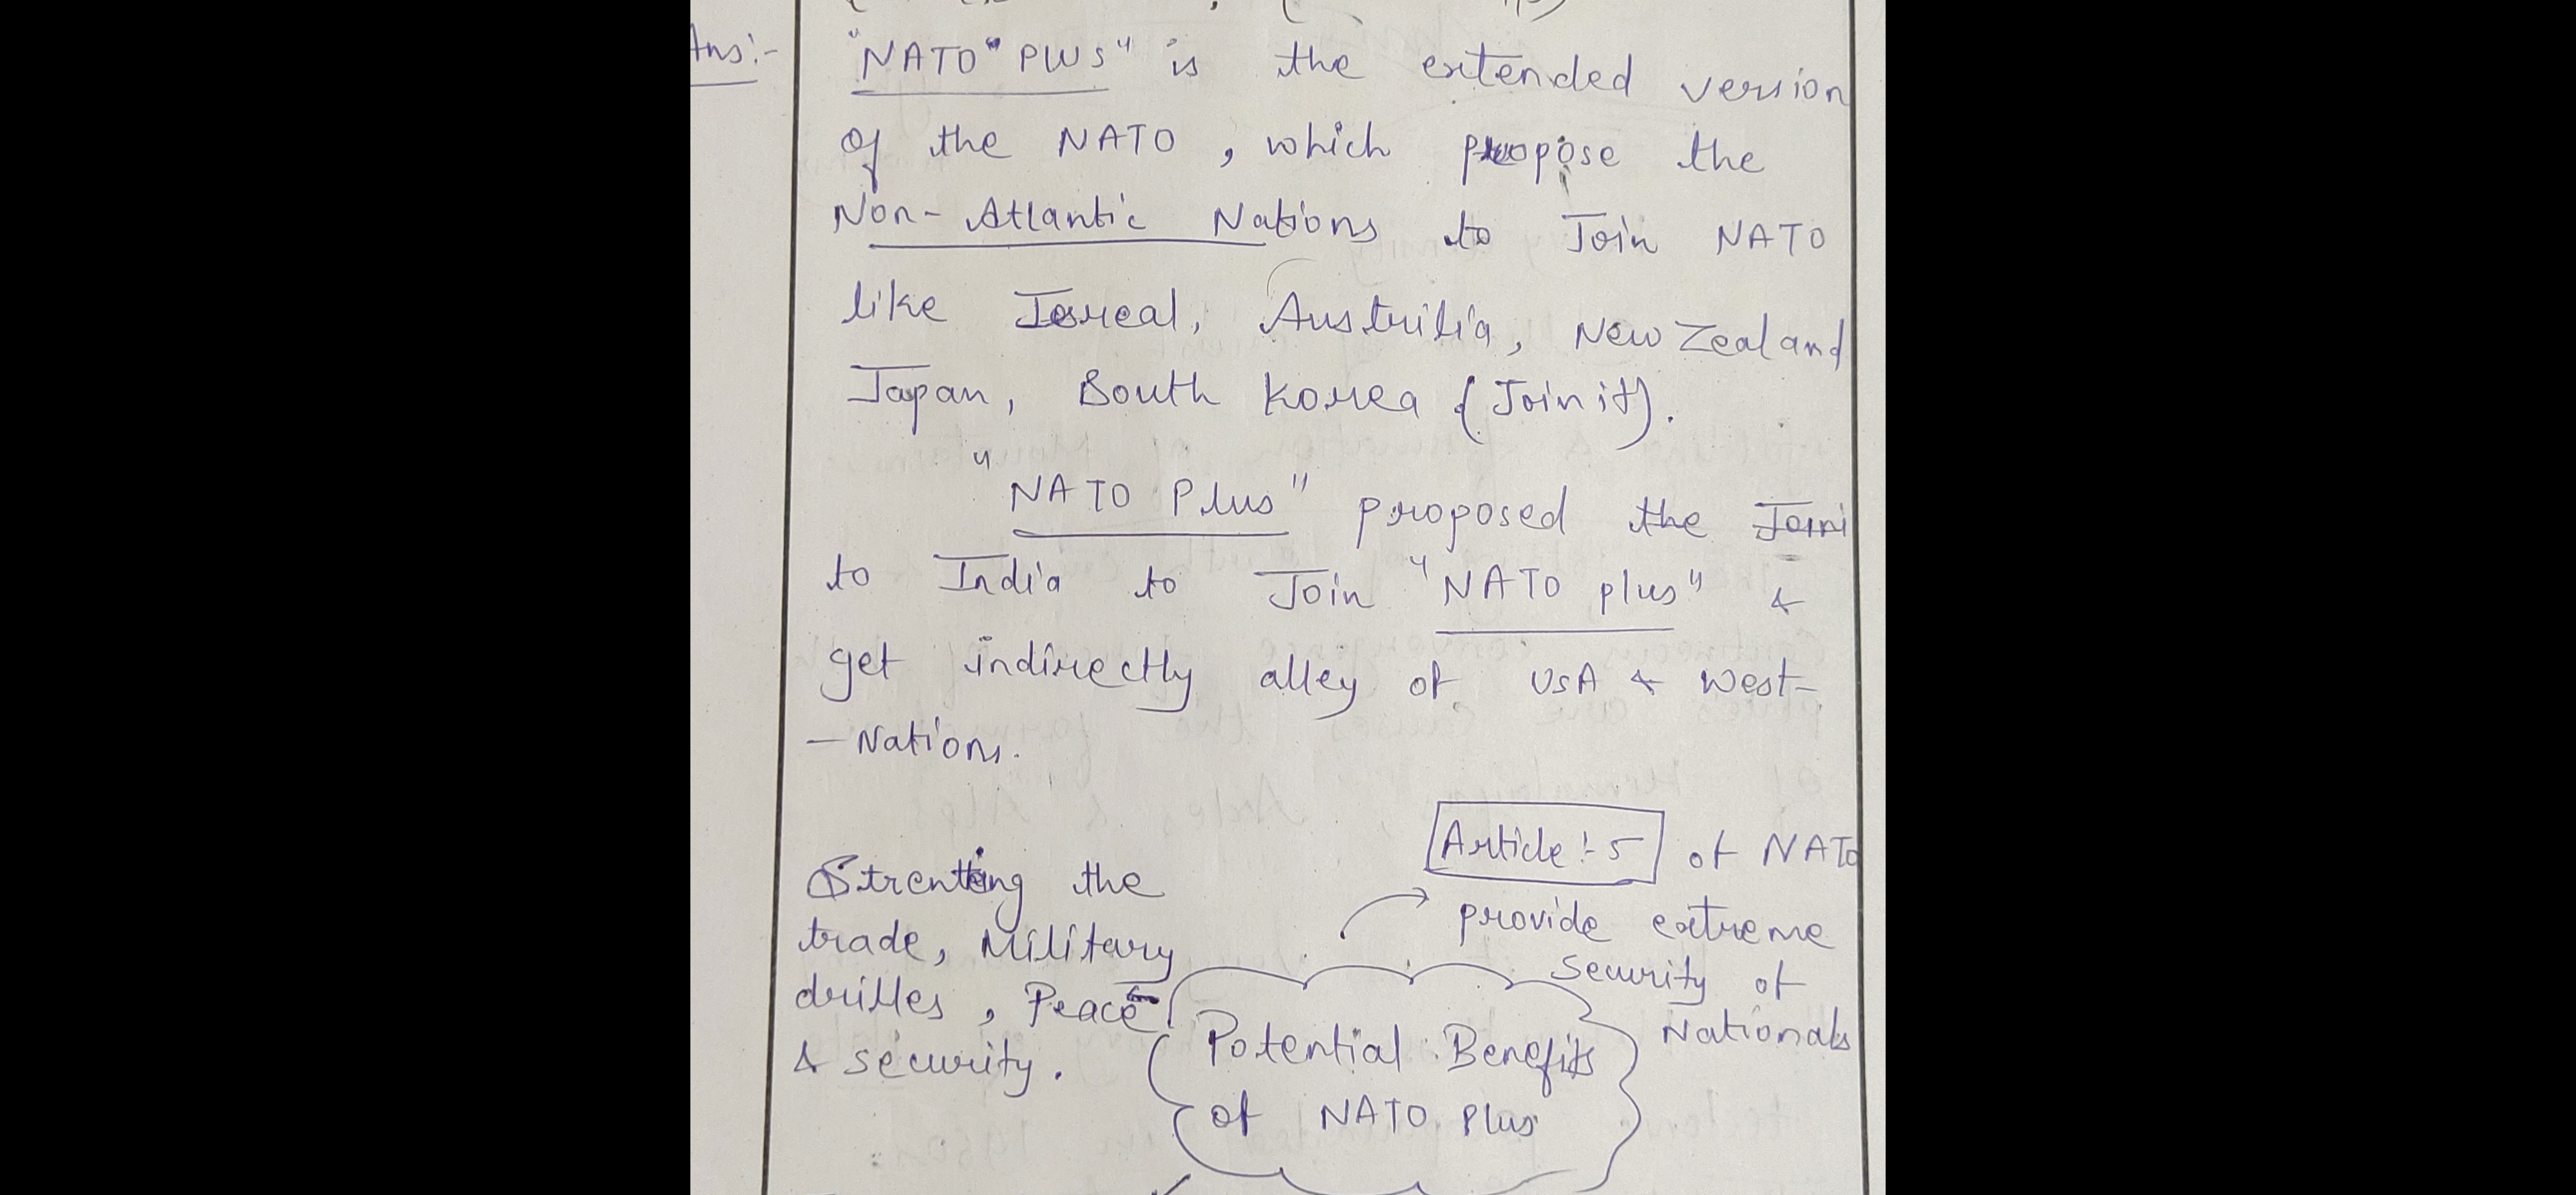 Ans:-
"NATO" PLUS" is the extended version
of the NATO, which propose the
Non-Atlantic Nations to Join NATO
like Isreal, Austrilia, New Zealand
Japan, South Korea (Join it).
"NATO Plus" proposed the
to India to Join "NATO plus" &
get indirectly alley of USA & West-
- Nations.
Article:-5 of NATO
provide extreme
security of
Nationals
Strenting the
trade, Military
drilles, Peace
& security.
Potential Benefits
of NATO Plus